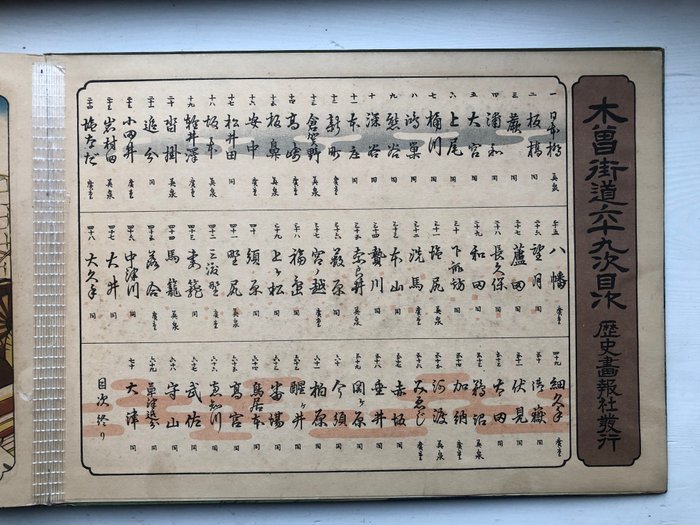 木曽街道六十九次目次 歴史畫報社發行
一 日本橋 英泉
二 板橋 同
三 蕨 同
四 浦和 同
五 大宮 同
六 上尾 同
七 桶川 同
八 鴻巣 同
九 熊谷 同
十 深谷 同
十一 本庄 同
十二 新町 廣重
十三 倉賀野 英泉
十四 高崎 廣重
十五 板鼻 英泉
十六 安中 廣重
十七 松井田 同
十八 坂本 英泉
十九 軽井澤 廣重
二十 沓掛 英泉
二十一 追分 同
二十二 小田井 廣重
二十三 岩村田 英泉
二十四 塩なだ 廣重
二十五 八幡 廣重
二十六 望月 同
二十七 蘆田 同
二十八 長久保 同
二十九 和田 同
三十 下諏訪 同
三十一 塩尻 英泉
三十二 洗馬 廣重
三十三 本山 同
三十四 贄川 同
三十五 奈良井 英泉
三十六 薮原 同
三十七 宮ノ越 廣重
三十八 福島 同
三十九 上ヶ松 同
四十 須原 同
四十一 野尻 英泉
四十二 三渡野 廣重
四十三 妻籠 同
四十四 馬籠 英泉
四十五 落合 廣重
四十六 中津川 同
四十七 大井 同
四十八 大久手 同
四十九 細久手 廣重
五十 御嶽 同
五十一 伏見 同
五十二 太田 同
五十三 鵜沼 英泉
五十四 加納 廣重
五十五 河渡 英泉
五十六 みゑじ 廣重
五十七 赤坂 同
五十八 垂井 同
五十九 関ヶ原 同
六十 今須 同
六十一 柏原 同
六十二 醒ヶ井 同
六十三 番場 同
六十四 鳥居本 同
六十五 高宮 同
六十六 恵知川 同
六十七 武佐 同
六十八 守山 同
六十九 草津追分 同
七十 大津 同
目次終り